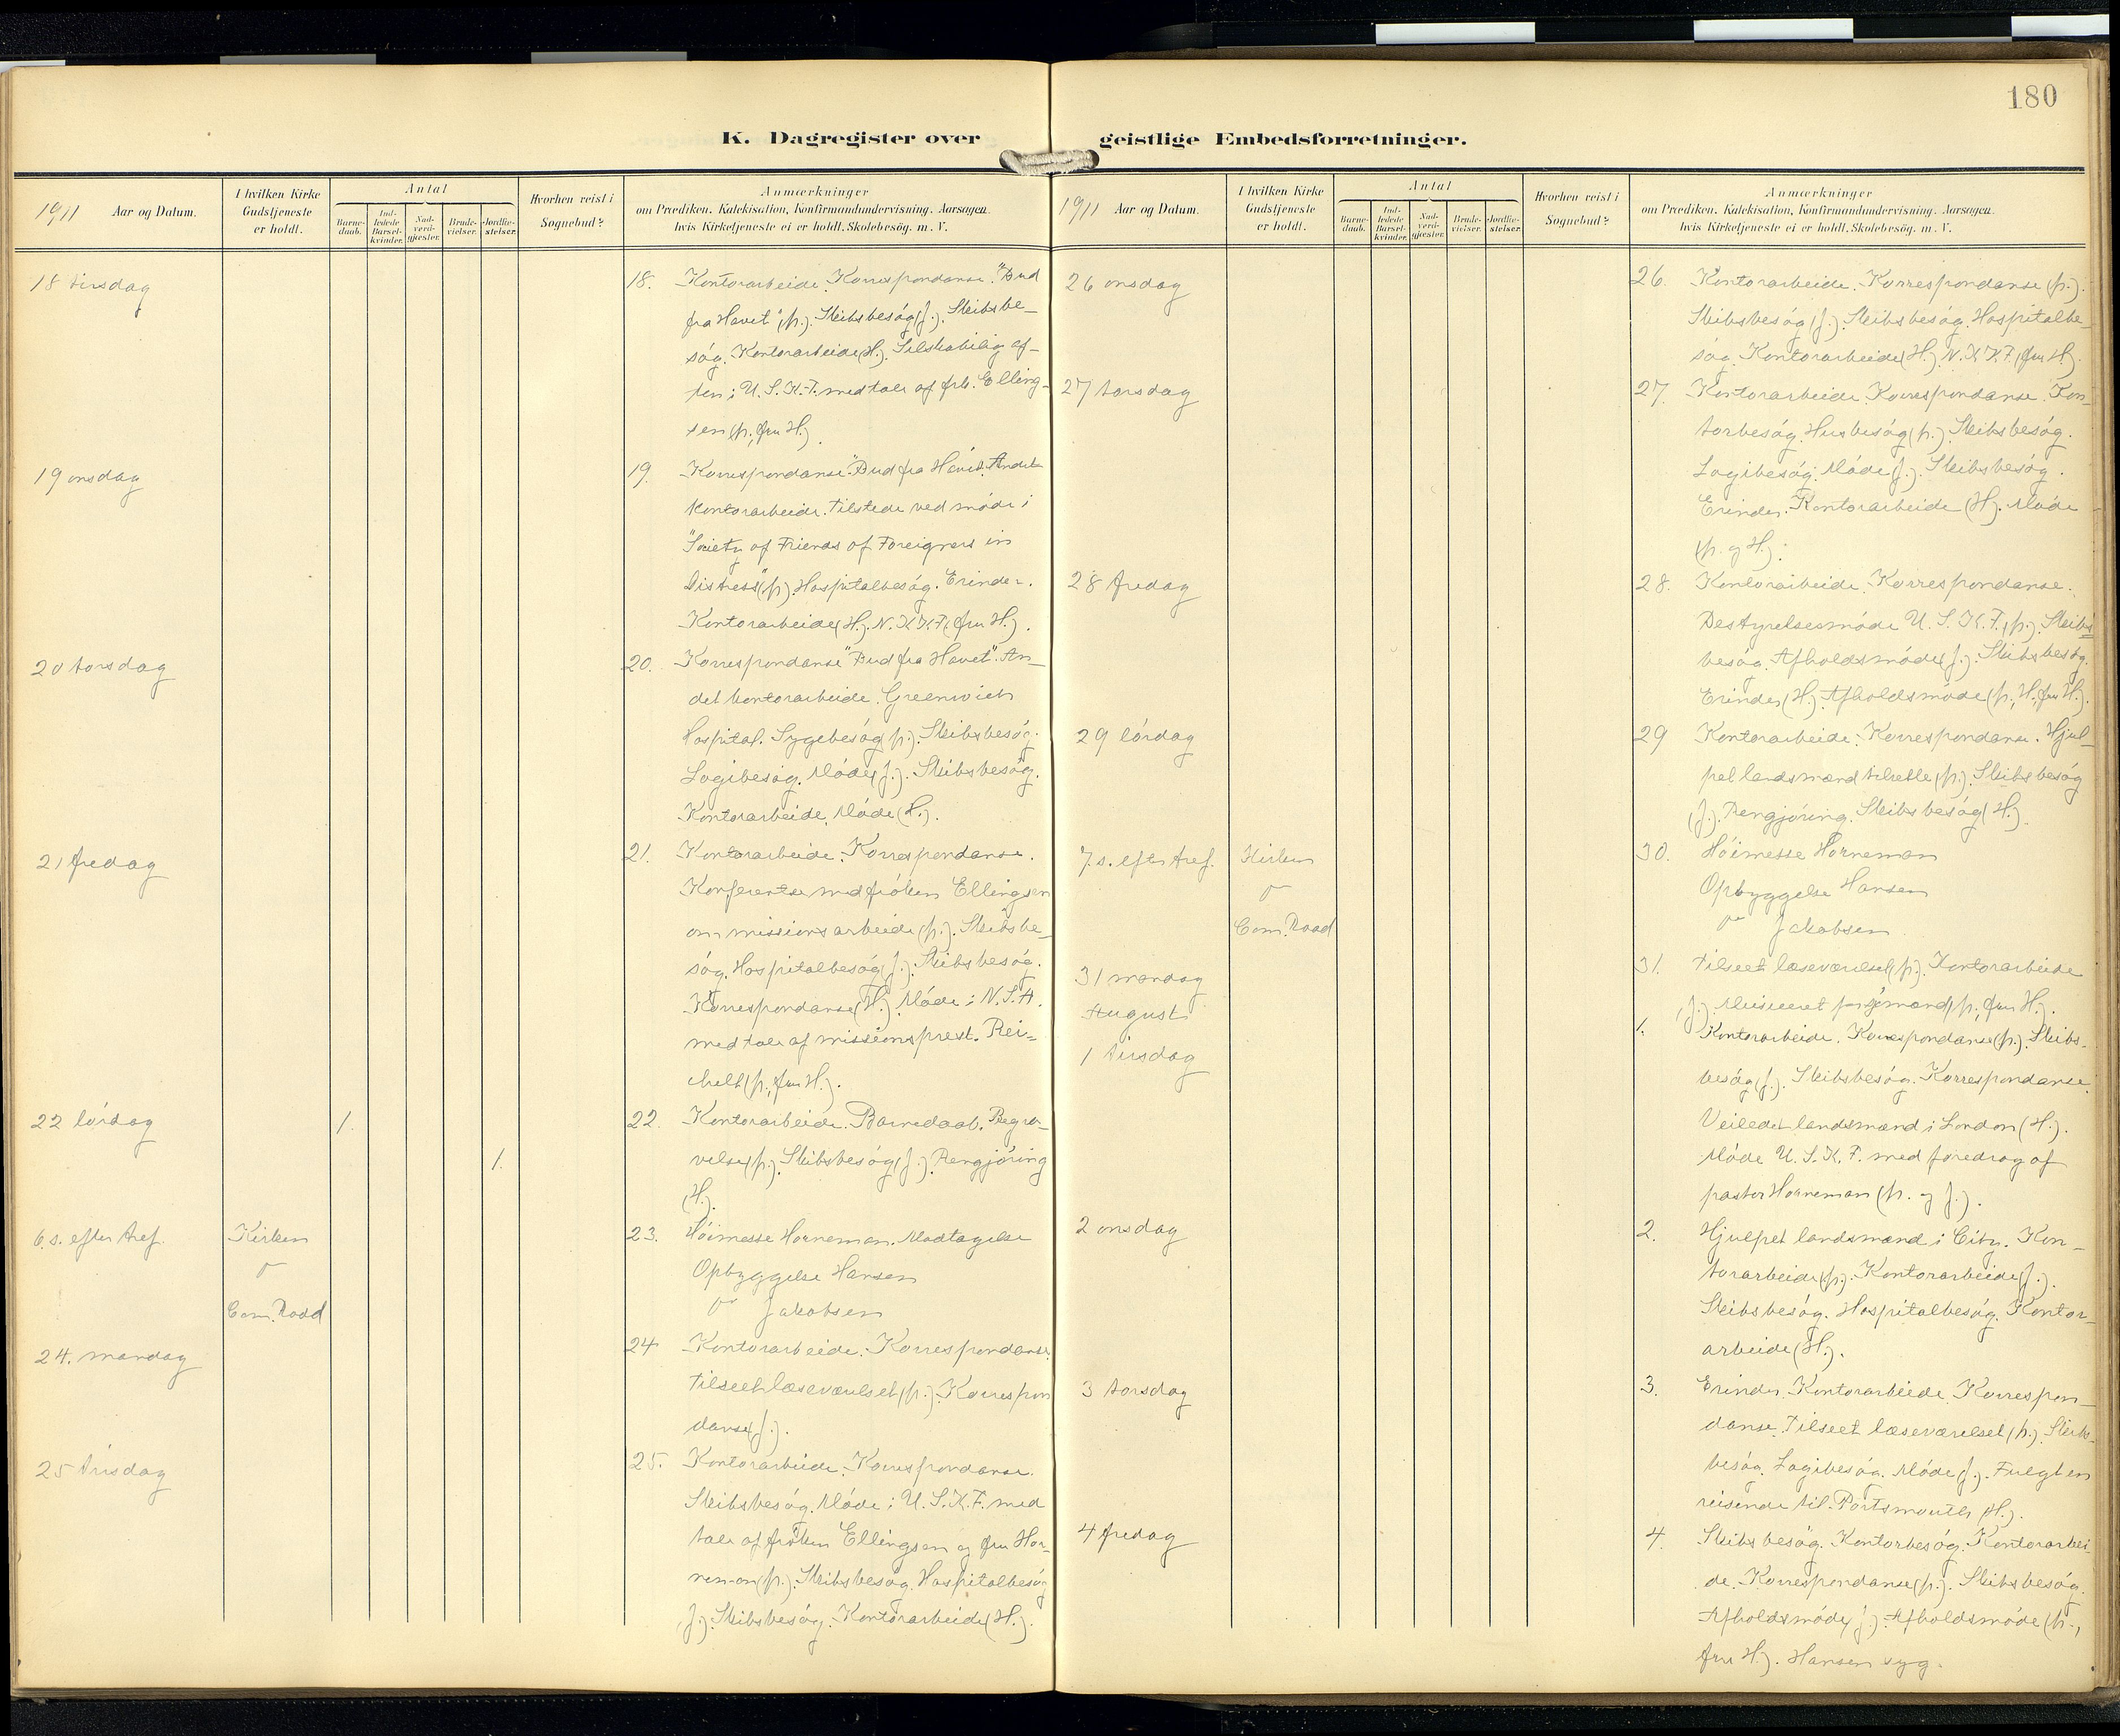 180
K. Dagregister over geistlige Embedsforretninger.
1911 Aar og Datum.
I hvilken Kirke Gudstjeneste er holdt.
Antal
Barne-daab.
Ind-ledede Barsel-kvinder.
Nad-verd-gjæster.
Brude-vielser.
Jordfæ-stelser.
Hvorhen reist i Sognebud?
Anmærkninger
om Prædiken, Katekisation, Konfirmandundervisning. Aarsagen,
hvis Kirketjeneste ei er holdt. Skolebesög. m. V.
18 tirsdag
18. Kontorarbeide. Korrespondanse. "Bud
fra Havet" (p.). Skibsbesøg (J.). Skibsbe-
søg. Kontorarbeide (H.). Selskabelig af-
ten i U.S.K.F. med tale af frk. Elling-
sen (p., fru H.).
19 onsdag
19. Korrespondanse. "Bud fra Havet". Andet
kontorarbeide. Tilstede ved møde i
"Society of Friends of Foreigners in
Distress" (p). Hospitalbesøg. Erinder.
Kontorarbeide (H.). N.K.K.F. (fru H.).
20 torsdag
20. Korrespondanse "Bud fra Havet". An-
det kontorarbeide. Greenwich
Hospital. Sygebesøg (p.). Skibsbesøg.
Logibesøg. Møde (J.). Skibsbesøg.
Kontorarbeide. Møde (H.).
21 fredag
21. Kontorarbeide. Korrespondanse.
Konferentse med frøken Ellingsen
om missionsarbeide (p.). Skibsbe-
søg. Hospitalbesøg (J.). Skibsbesøg.
Korrespondanse (H.). Møde i N.S.A.
med tale af missionsprest. Rei-
chelt (p., fru H.).
22 lørdag
1.
1.
22. Kontorarbeide. Barnedaab. Begra-
velse (p.). Skibsbesøg (J.). Rengjøring
(H.).
6. s. efter tref.
Kirken
Com. Road
23. Høimesse Horneman. Modtagelse
Opbyggelse Hansen
Jakobsen
24. mandag
24 Kontorarbeide. Korrespondanse.
Tilseet læseværelset (p.). Korrespon
danse (J.).
25 tirsdag
25. Kontorarbeide. Korrespondanse.
Skibsbesøg. Møde i U.S.K.F. med
tale af frøken Ellingsen og fru Hor-
neman (p.). Skibsbesøg. Hospitalbesøg
(J.). Skibsbesøg. Kontorarbeide (H.).
1911 Aar og Datum.
I hvilken Kirke Gudstjeneste er holdt.
Antal
Barne-daab.
Ind-ledede Barsel-kvinder.
Nad-verd-gjæster.
Brude-vielser.
Jordfæ-stelser.
Hvorhen reist i Sognebud?
Anmærkninger
om Prædiken, Katekisation, Konfirmandundervisning. Aarsagen,
hvis Kirketjeneste ei er holdt. Skolebesög. m. V.
26 onsdag
26. Kontorarbeide. Korrespondanse (p.).
Skibsbesøg (J.). Skibsbesøg. Hospitalbe-
søg. Kontorarbeide (H.). N.K.K.F. (fru H.).
27 torsdag
27. Kontorarbeide. Korrespondanse. Kon-
torbesøg. Husbesøg (p.). Skibsbesøg.
Logibesøg. Møde (J.). Skibsbesøg.
Erinder. Kontorarbeide (H.). Møde
(p. og H.).
28 fredag
28. Kontorarbeide. Korrespondanse.
Bestyrelsesmøde U.S.K.F. (p.). Skibs
besøg. Afholdsmøde (J.). Skibsbesøg.
Erinder (H.). Afholdsmøde (p., H., fru H.).
29 lørdag
29 Kontorarbeide. Korrespondanse. Hjul-
pet landsmænd tilrette (p.). Skibsbesøg
(J.). Rengjøring. Skibsbesøg (H.).
7. s. efter tref.
Kirken
Com. Road
30. Høimesse Horneman
Opbyggelse Hansen
Jakobsen
31 mandag
31. Tilseet læseværelset (p.). Kontorarbeide
(J.). Musiceret for sjømænd (p., fru H.).
August
1 tirsdag
1. Kontorarbeide. Korrespondanse (p.). Skibs-
besøg (J.). Skibsbesøg. Korrespondanse.
Veiledet landsmænd i London (H.).
Møde U.S.K.F. med foredrag af
pastor Horneman (p. og J.).
2 onsdag
2. Hjulpet landsmænd i City. Kon-
torarbeide (p.). Kontorarbeide (J.).
Skibsbesøg. Hospitalbesøg. Kontor-
arbeide (H.).
3 torsdag
3. Erinder. Kontorarbeide. Korrespon-
danse. Tilseet læseværelset (p.). Skibs-
besøg. Logibesøg. Møde (J.). Fulgt en
reisende til Portsmouth (H.).
4 fredag
4. Skibsbesøg. Kontorbesøg. Kontorarbei-
de. Korrespondanse (p.). Skibsbesøg.
Afholdsmøde (J.). Afholdsmøde (p.,
fru H.). Hansen syg.